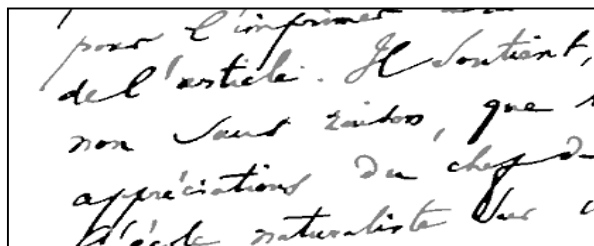 pour l'imprimer
de l'article. Il soutient,
non sans raison, que
appréciations du chef de
l'école naturaliste sur